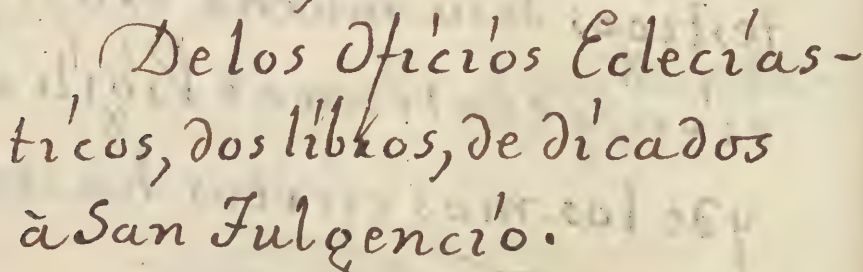 Delos Oficios Ecleciás-
ticos, dos libros, de dicados
à San Fulgencio.